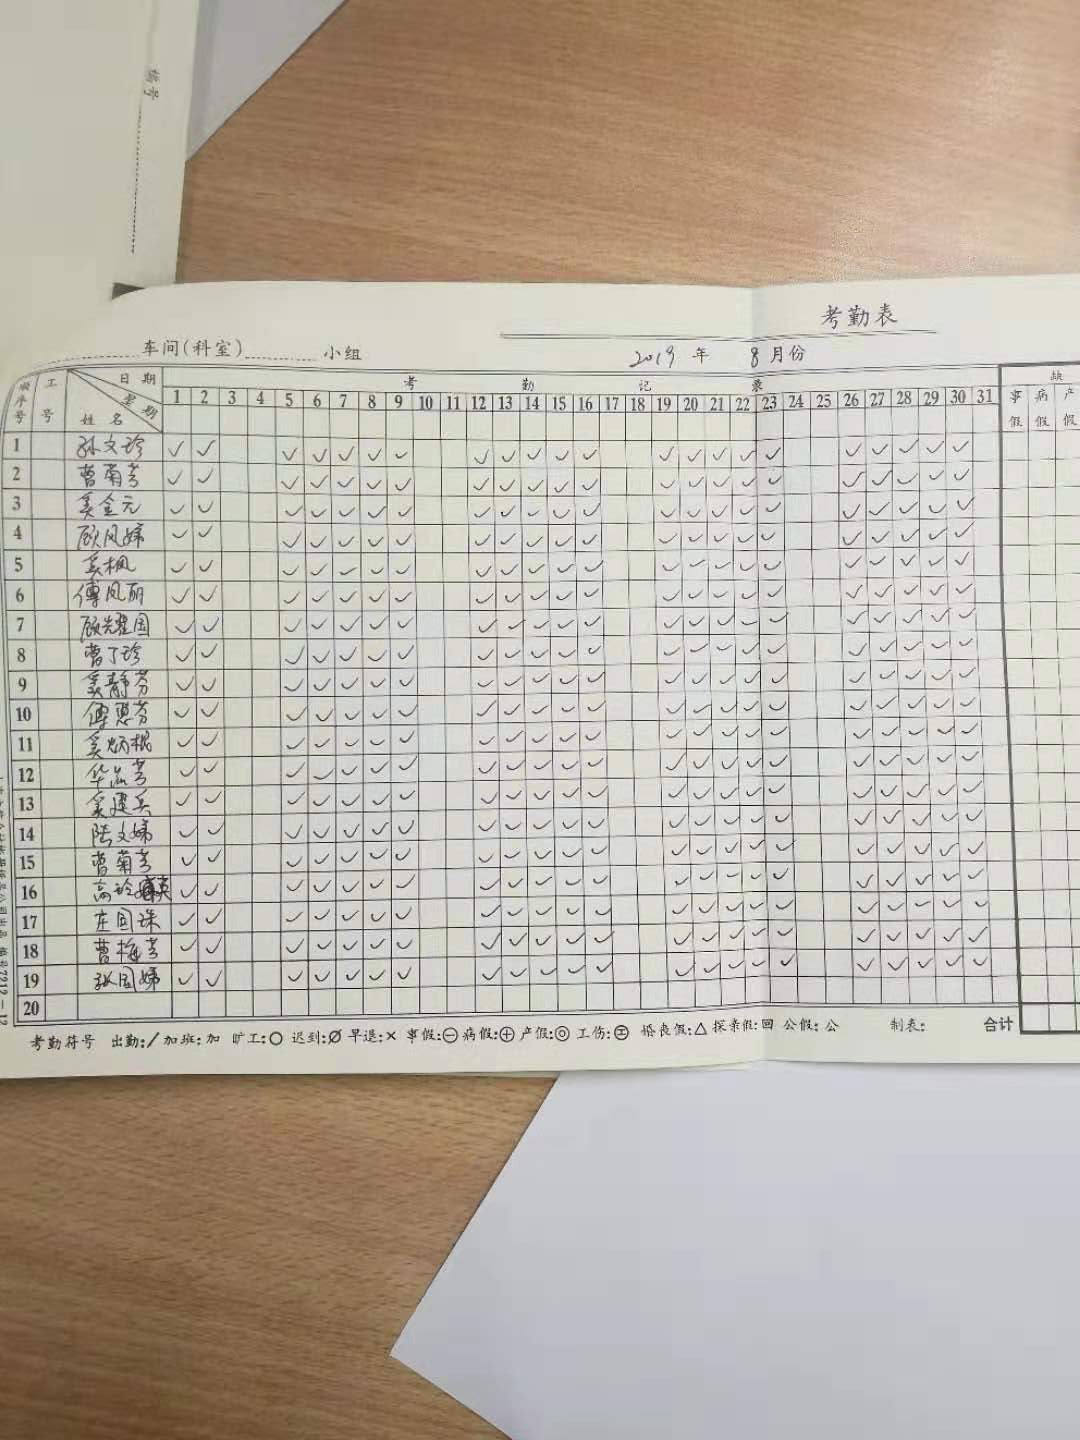 编号
考勤表
车间(科室) 小组 2019 年 8 月份
顺序号 工号 日期 星期 姓名 考勤记录 缺
1 2 3 4 5 6 7 8 9 10 11 12 13 14 15 16 17 18 19 20 21 22 23 24 25 26 27 28 29 30 31 事假 病假 产假
1 孙文珍 ✓ ✓ ✓ ✓ ✓ ✓ ✓ ✓ ✓ ✓ ✓ ✓ ✓ ✓ ✓ ✓ ✓ ✓ ✓ ✓ ✓ ✓
2 曹菊芳 ✓ ✓ ✓ ✓ ✓ ✓ ✓ ✓ ✓ ✓ ✓ ✓ ✓ ✓ ✓ ✓ ✓ ✓ ✓ ✓ ✓ ✓
3 金元 ✓ ✓ ✓ ✓ ✓ ✓ ✓ ✓ ✓ ✓ ✓ ✓ ✓ ✓ ✓ ✓ ✓ ✓ ✓ ✓ ✓ ✓
4 顾凤娣 ✓ ✓ ✓ ✓ ✓ ✓ ✓ ✓ ✓ ✓ ✓ ✓ ✓ ✓ ✓ ✓ ✓ ✓ ✓ ✓ ✓ ✓
5 枫 ✓ ✓ ✓ ✓ ✓ ✓ ✓ ✓ ✓ ✓ ✓ ✓ ✓ ✓ ✓ ✓ ✓ ✓ ✓ ✓ ✓ ✓
6 傅凤丽 ✓ ✓ ✓ ✓ ✓ ✓ ✓ ✓ ✓ ✓ ✓ ✓ ✓ ✓ ✓ ✓ ✓ ✓ ✓ ✓ ✓ ✓
7 顾国 ✓ ✓ ✓ ✓ ✓ ✓ ✓ ✓ ✓ ✓ ✓ ✓ ✓ ✓ ✓ ✓ ✓ ✓ ✓ ✓ ✓ ✓
8 曹丁珍 ✓ ✓ ✓ ✓ ✓ ✓ ✓ ✓ ✓ ✓ ✓ ✓ ✓ ✓ ✓ ✓ ✓ ✓ ✓ ✓ ✓ ✓
9 静芬 ✓ ✓ ✓ ✓ ✓ ✓ ✓ ✓ ✓ ✓ ✓ ✓ ✓ ✓ ✓ ✓ ✓ ✓ ✓ ✓ ✓ ✓
10 傅惠芬 ✓ ✓ ✓ ✓ ✓ ✓ ✓ ✓ ✓ ✓ ✓ ✓ ✓ ✓ ✓ ✓ ✓ ✓ ✓ ✓ ✓ ✓
11 炳根 ✓ ✓ ✓ ✓ ✓ ✓ ✓ ✓ ✓ ✓ ✓ ✓ ✓ ✓ ✓ ✓ ✓ ✓ ✓ ✓ ✓ ✓
12 华芳 ✓ ✓ ✓ ✓ ✓ ✓ ✓ ✓ ✓ ✓ ✓ ✓ ✓ ✓ ✓ ✓ ✓ ✓ ✓ ✓ ✓ ✓
13 建兵 ✓ ✓ ✓ ✓ ✓ ✓ ✓ ✓ ✓ ✓ ✓ ✓ ✓ ✓ ✓ ✓ ✓ ✓ ✓ ✓ ✓ ✓
14 陆文娣 ✓ ✓ ✓ ✓ ✓ ✓ ✓ ✓ ✓ ✓ ✓ ✓ ✓ ✓ ✓ ✓ ✓ ✓ ✓ ✓ ✓ ✓
15 曹菊芳 ✓ ✓ ✓ ✓ ✓ ✓ ✓ ✓ ✓ ✓ ✓ ✓ ✓ ✓ ✓ ✓ ✓ ✓ ✓ ✓ ✓ ✓
16 高玲英 ✓ ✓ ✓ ✓ ✓ ✓ ✓ ✓ ✓ ✓ ✓ ✓ ✓ ✓ ✓ ✓ ✓ ✓ ✓ ✓ ✓ ✓
17 庄囙珠 ✓ ✓ ✓ ✓ ✓ ✓ ✓ ✓ ✓ ✓ ✓ ✓ ✓ ✓ ✓ ✓ ✓ ✓ ✓ ✓ ✓ ✓
18 曹梅芳 ✓ ✓ ✓ ✓ ✓ ✓ ✓ ✓ ✓ ✓ ✓ ✓ ✓ ✓ ✓ ✓ ✓ ✓ ✓ ✓ ✓ ✓
19 张国娣 ✓ ✓ ✓ ✓ ✓ ✓ ✓ ✓ ✓ ✓ ✓ ✓ ✓ ✓ ✓ ✓ ✓ ✓ ✓ ✓ ✓ ✓
20
考勤符号 出勤:/ 加班:加 旷工:○ 迟到:Ø 早退:× 事假:⊖ 病假:⊕ 产假:◎ 工伤:㊣ 婚丧假:△ 探亲假:回 公假:公 制表: 合计